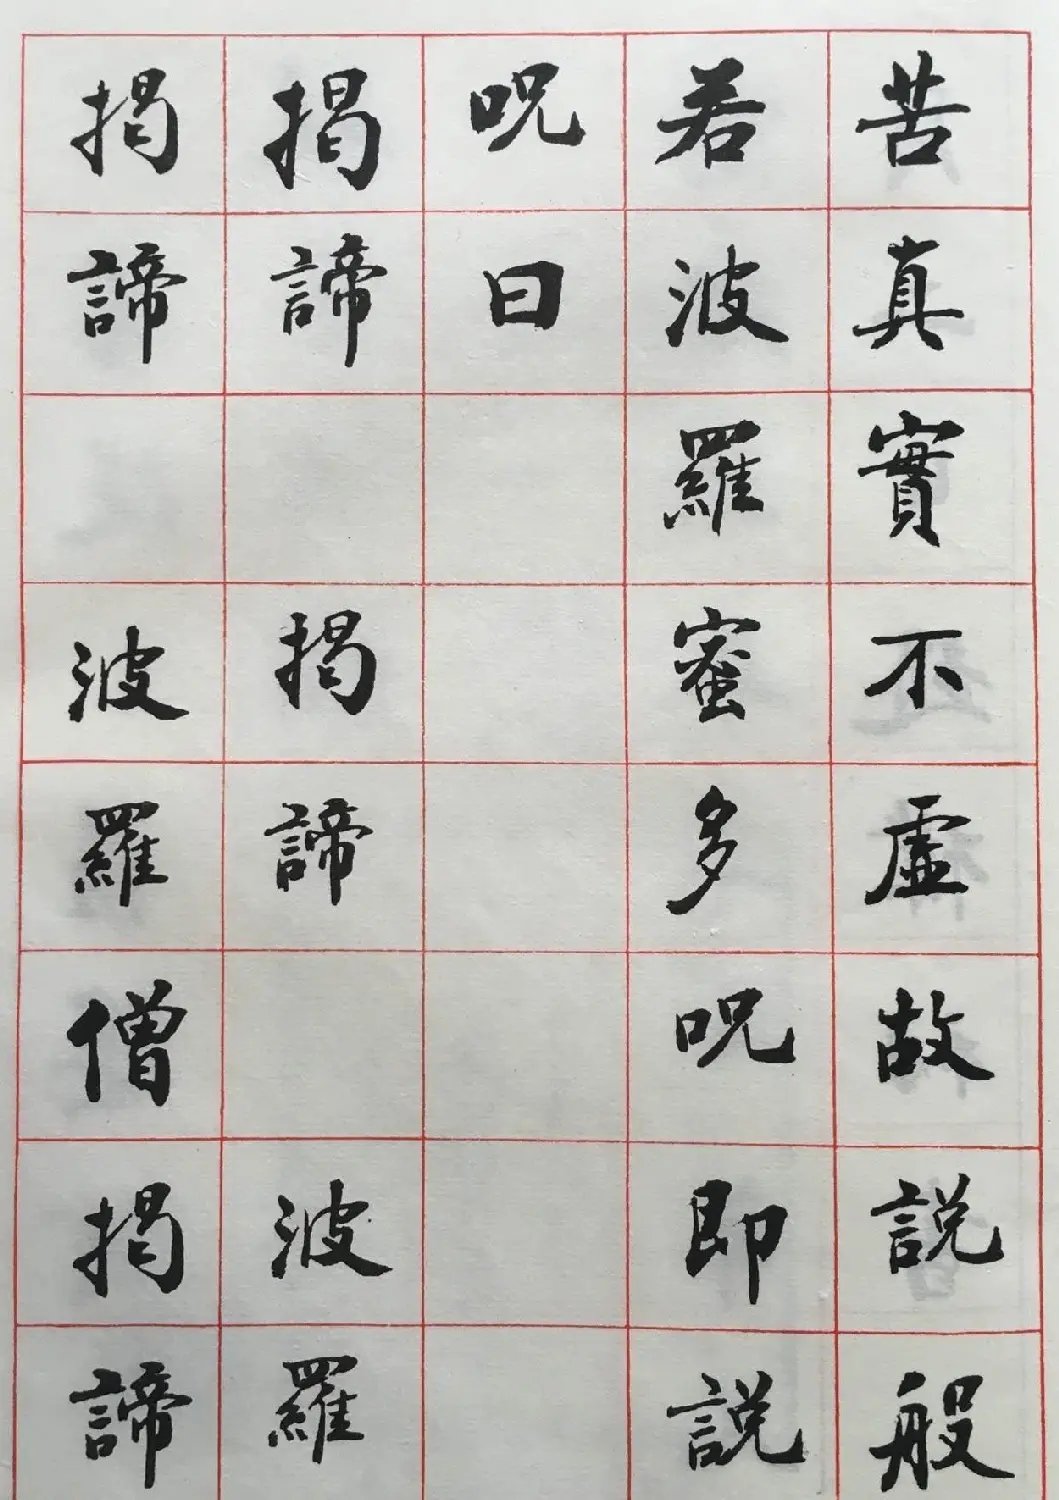 苦真實不虛故説般
若波羅蜜多呪即説
呪曰
揭諦 揭諦 波羅
揭諦 波羅僧揭諦